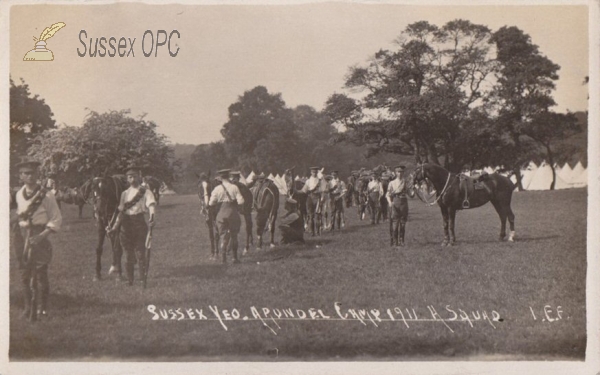 Sussex OPC
SUSSEX YEO. ARUNDEL CAMP 1911 H SQUAD. I.E.F.